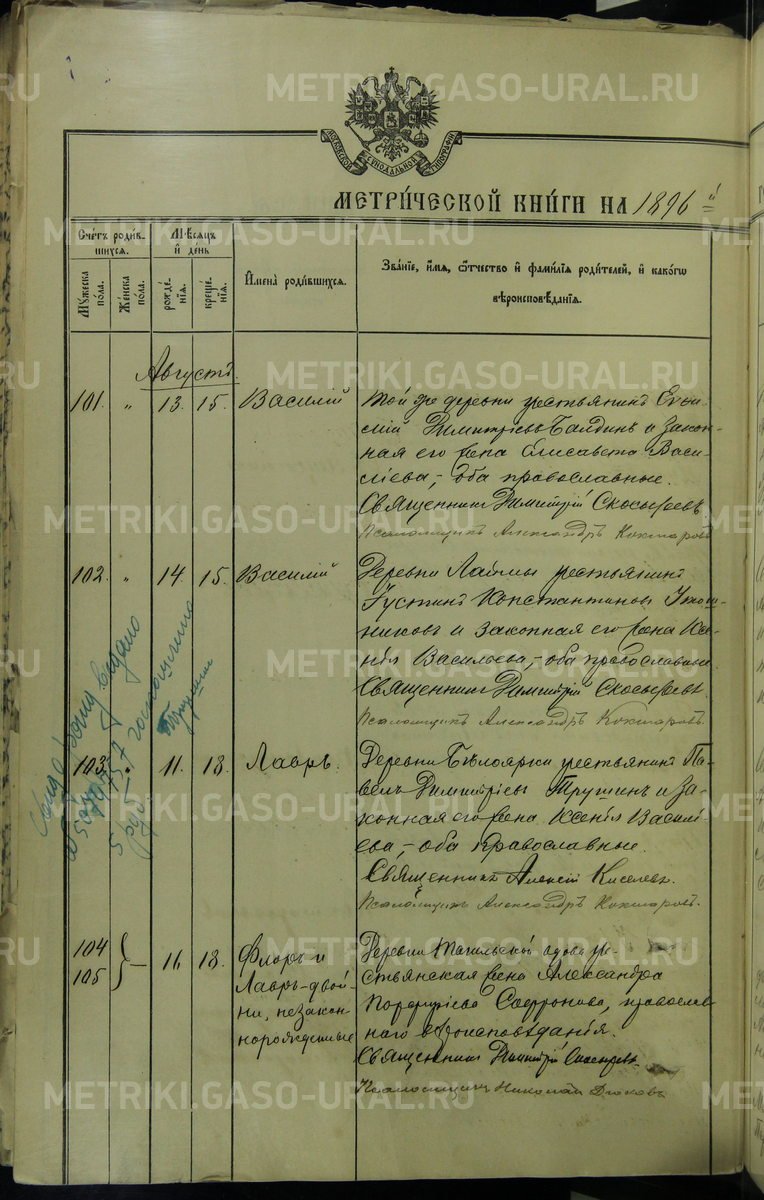 МОСКОВСКОЙ СѴНОДАЛЬНОЙ ТИПОГРАФІИ
МЕТРИ́ЧЕСКОЙ КНИ́ГИ НА 1896 й
Сче́тъ роди́вшихся.
Мꙋ́жеска по́ла.
Же́нска по́ла.
Мѣ́сяцъ и҆ де́нь
рожде́нїѧ.
креще́нїѧ.
И҆мена̀ роди́вшихсѧ.
Зва́нїе, и҆́мѧ, ѻ҆́тчество и҆ фами́лїѧ роди́телей, и҆ како́гѡ
вѣроисповѣ́данїѧ.
Августъ.
101. " 13. 15. Василій
Той же деревни крестьянинъ Евѳи-
мій Димитріевъ Балдинъ и закон-
ная его жена Елисавета Васи-
ліева, - оба православные.
Священникъ Димитрій Скосыревъ
Псаломщикъ Александръ
102. " 14. 15. Василій
Деревни крестьянинъ
Іустинъ Константиновъ
никовъ и законная его жена Ксе-
нія Васильева, - оба православные
Священникъ Димитрій Скосыревъ.
Псаломщикъ Александръ
103. " 11. 18. Лавръ.
Деревни Бѣлоярки крестьянинъ Па-
велъ Димитріевъ Трушинъ и за-
конная его жена Ксенія Василі-
ева, - оба православные.
Священникъ Алексій Киселевъ.
Псаломщикъ Александръ
выдано
5 руб.
госпошлина
104
105 } — 16 18. Флоръ и
Лавръ-двой-
ни, незакон-
норожденные
Деревни вдова кре-
стьянская жена Александра
Порфиріева Сафронова, православ-
наго вѣроисповѣданія.
Священникъ Димитрій Скосыревъ.
Псаломщикъ Николай
METRIKI.GASO-URAL.RU